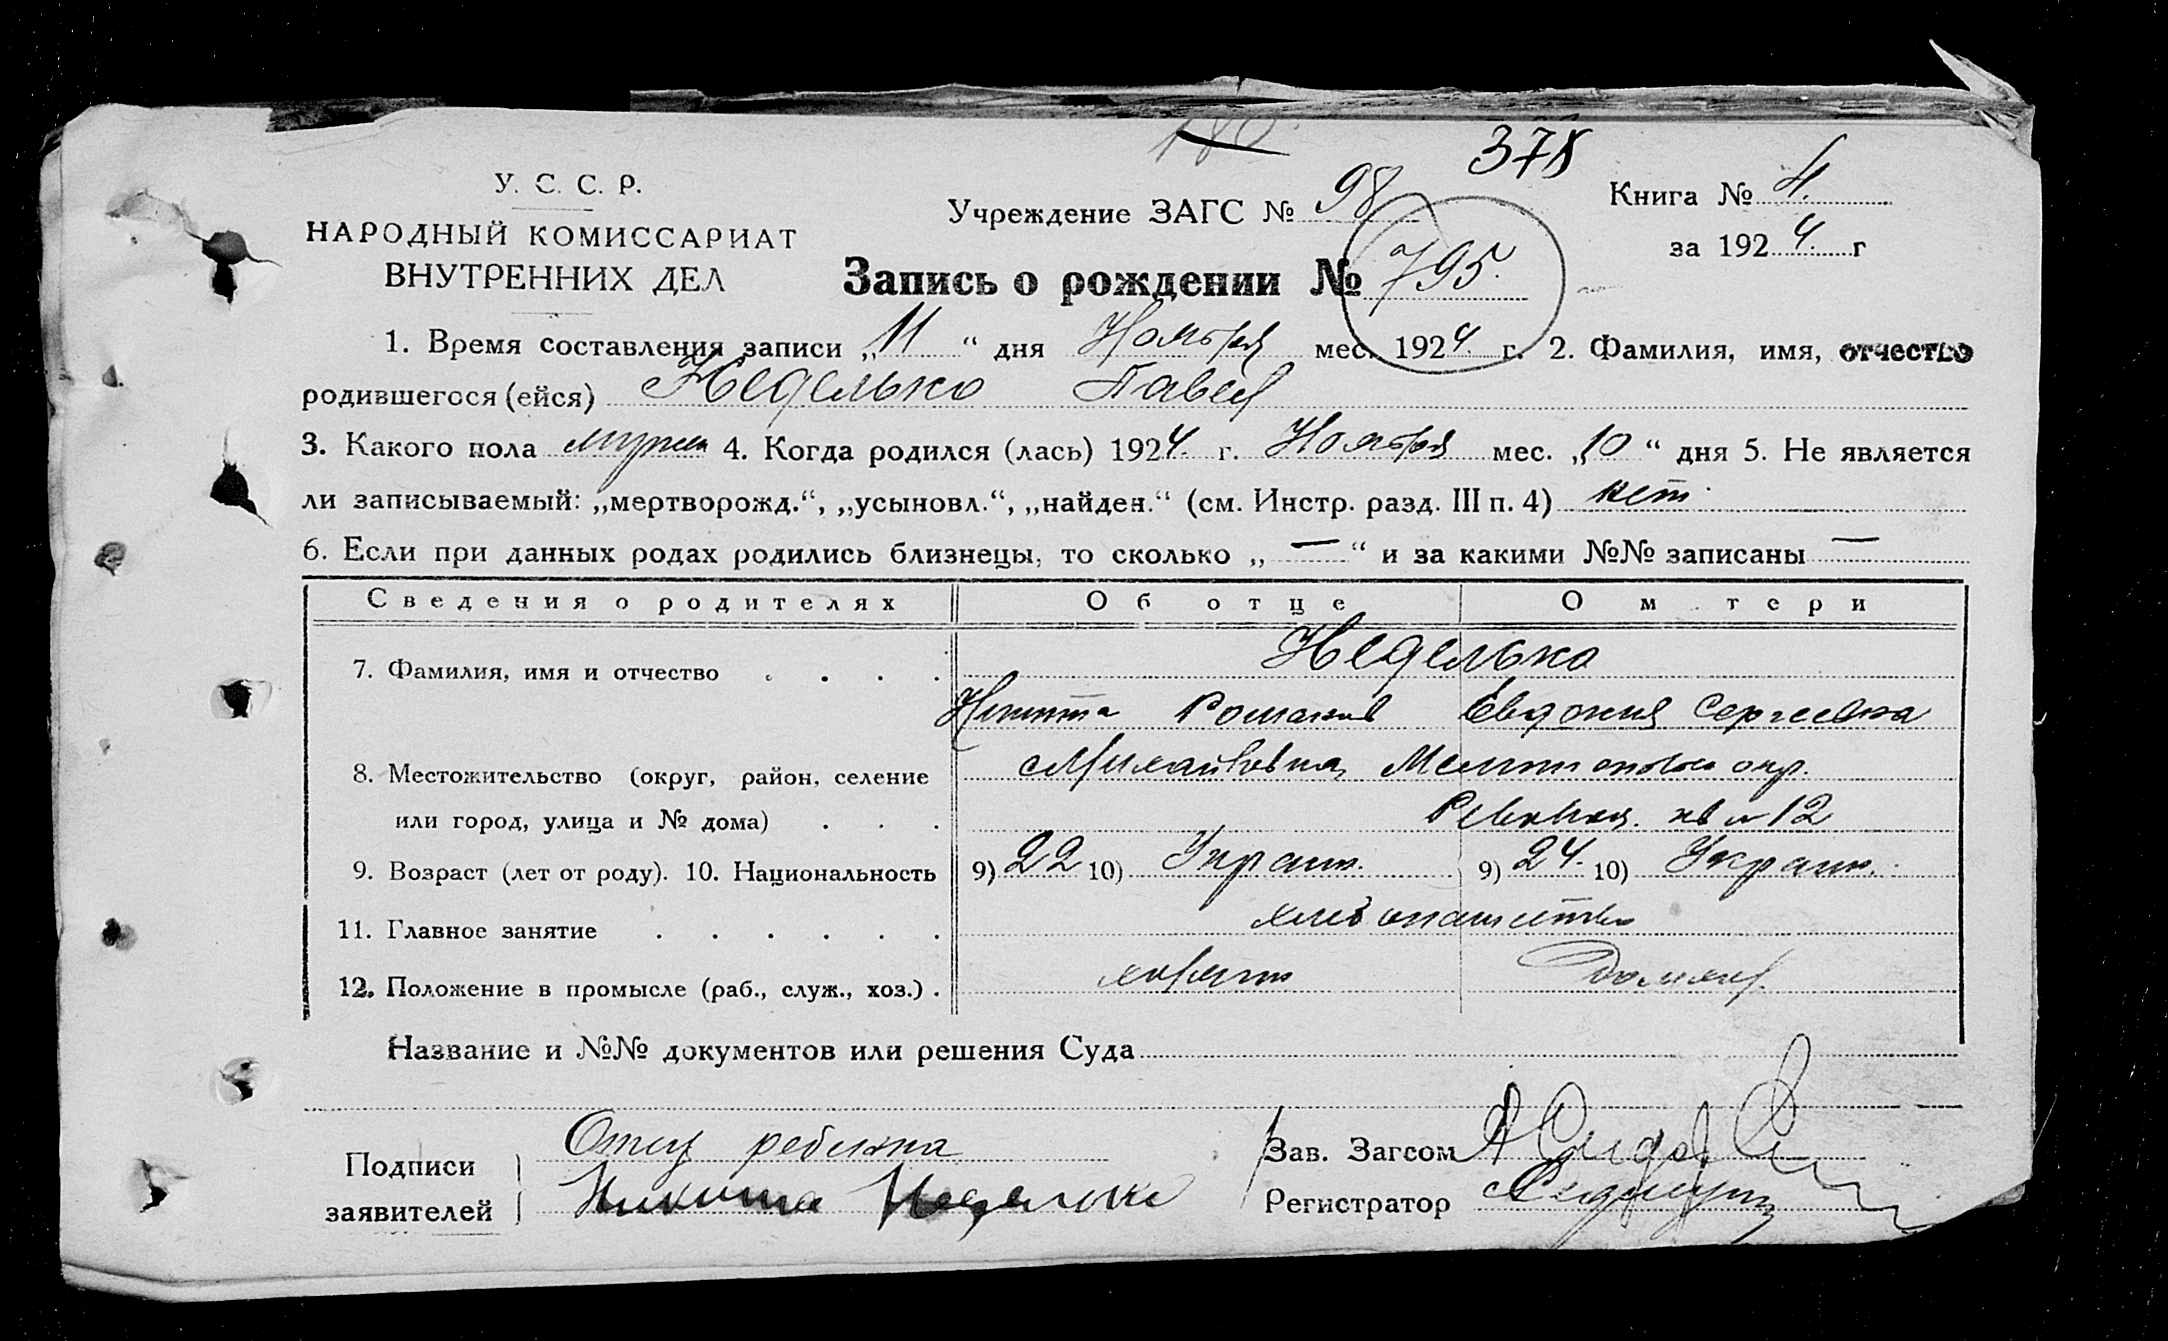 378
У. С. С. Р.
НАРОДНЫЙ КОМИССАРИАТ
ВНУТРЕННИХ ДЕЛ
Учреждение ЗАГС № 98
Книга № 4.
за 1924. г
Запись о рождении № 795.
1. Время составления записи „11“ дня Ноября мес. 1924. г. 2. Фамилия, имя, отчество
родившегося (ейся) Неделько Павел
3. Какого пола мужск 4. Когда родился (лась) 1924. г. Ноября мес. „10“ дня 5. Не является
ли записываемый: „мертворожд.“, „усыновл.“, „найден.“ (см. Инстр. разд. III п. 4) нет.
6. Если при данных родах родились близнецы, то сколько „ — “ и за какими №№ записаны —
Сведения о родителях Об отце О м тери
7. Фамилия, имя и отчество . . . . Неделько
Никита Романов Евдокия Сергеевна
8. Местожительство (округ, район, селение Михайловка Мелитопольск окр.
или город, улица и № дома) . . . кв № 12
9. Возраст (лет от роду). 10. Национальность 9) 22 10) Украин. 9) 24. 10) Украин.
11. Главное занятие . . . . . . хлебопашество
12. Положение в промысле (раб., служ., хоз.) . Домхоз.
Название и №№ документов или решения Суда
Подписи заявителей Отец ребенка
Никита Неделько
Зав. Загсом
Регистратор